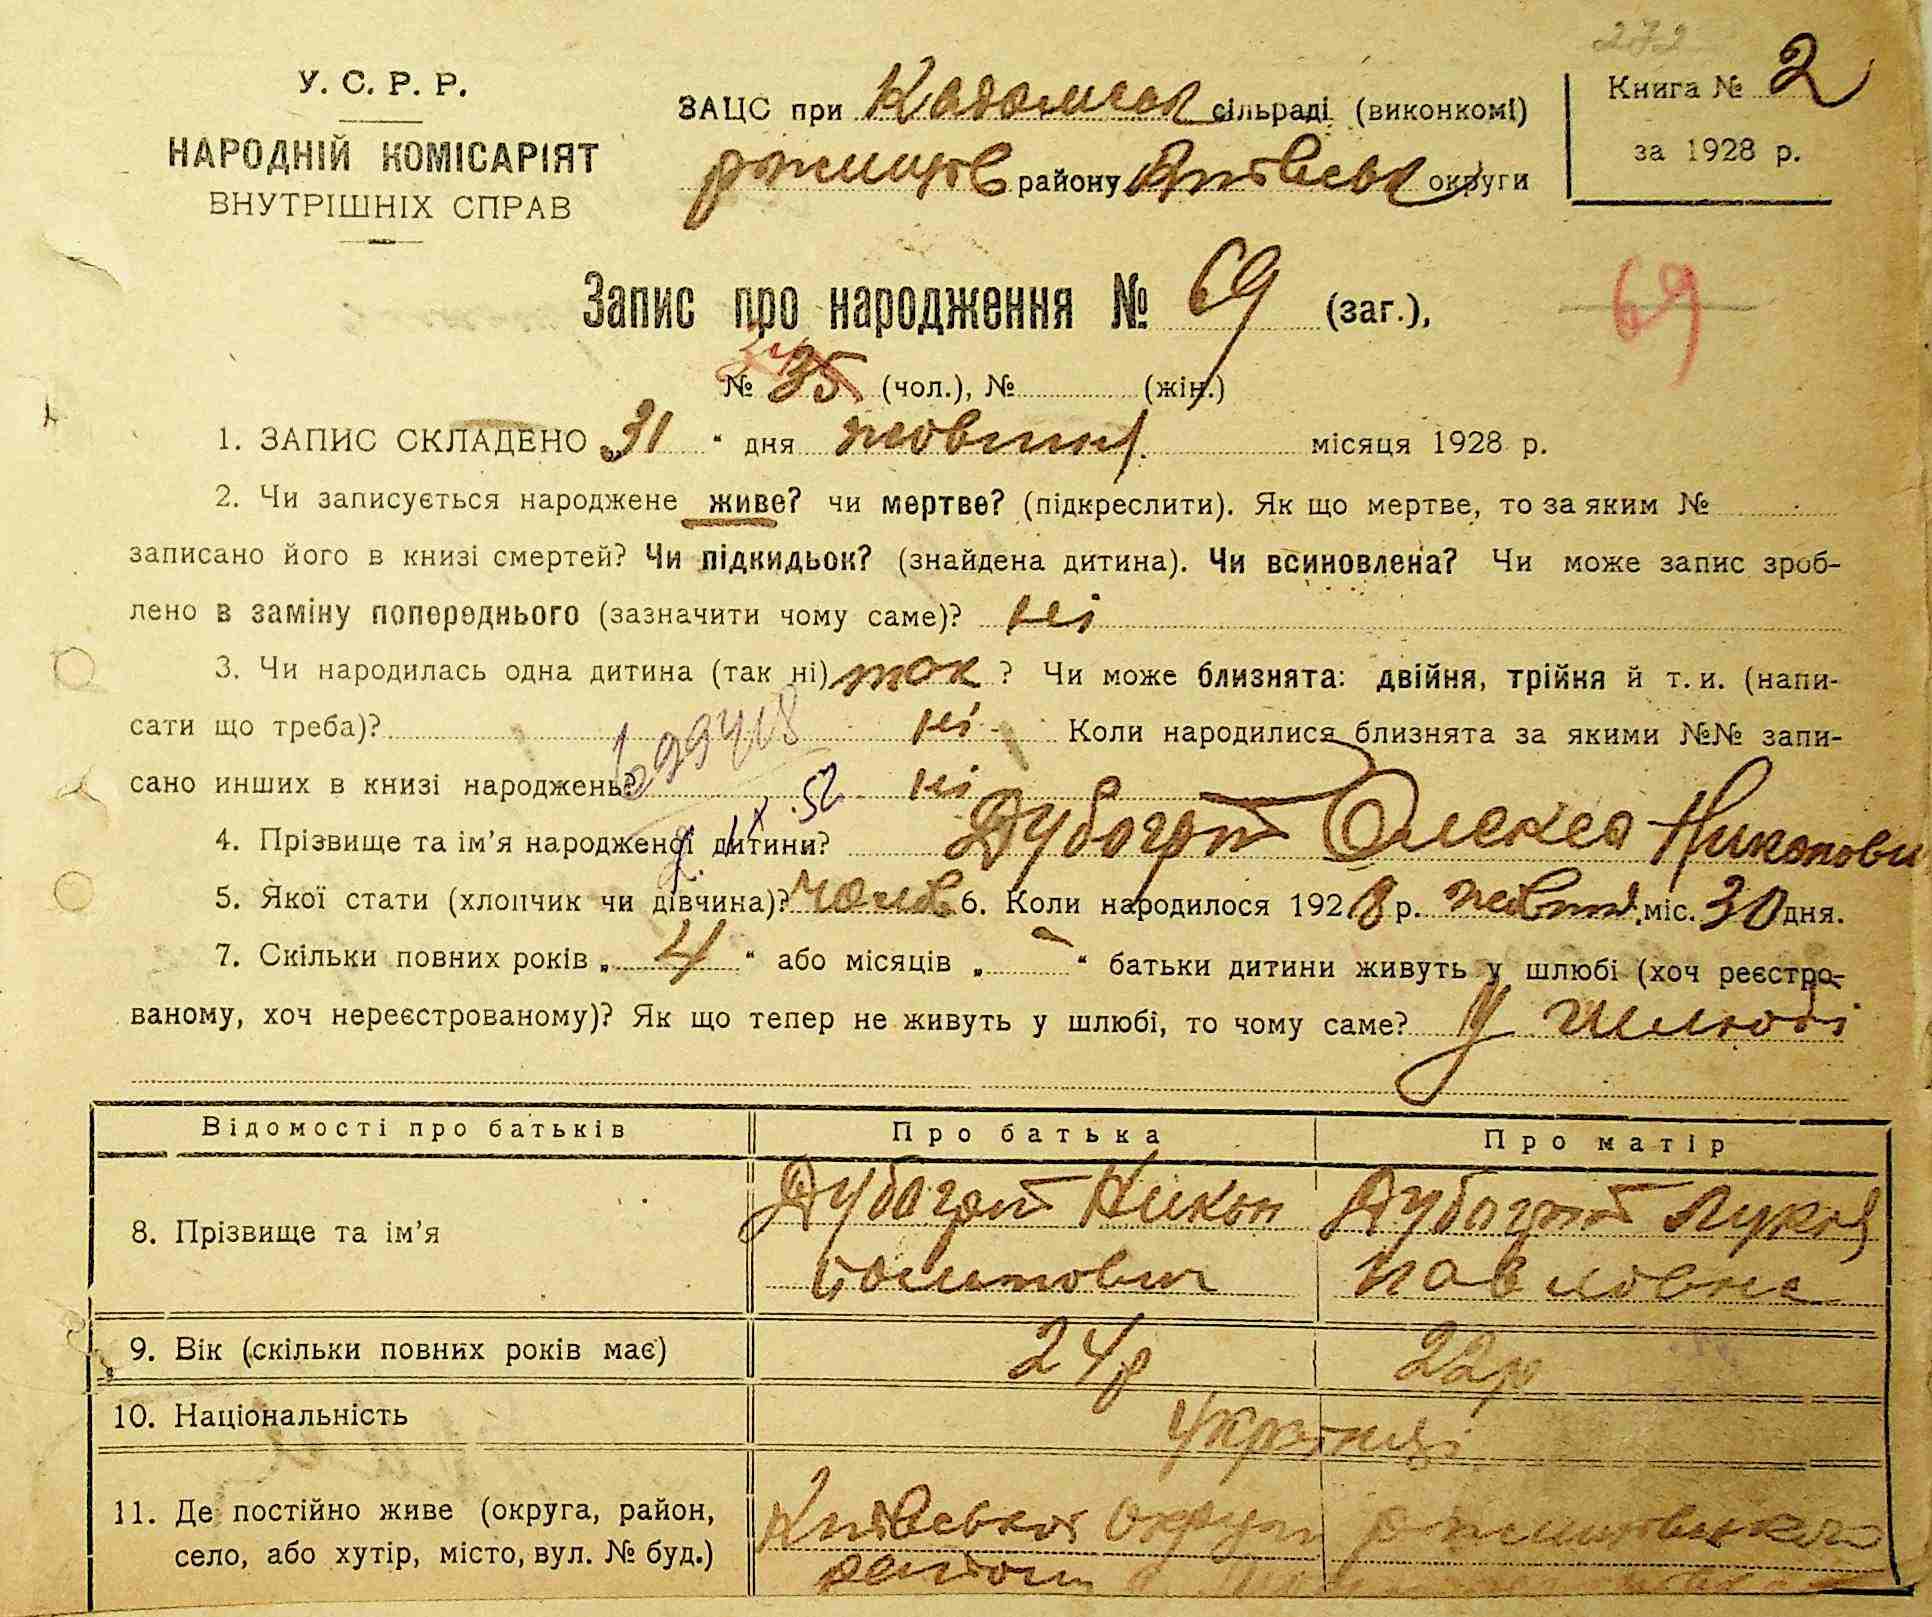 272
У. С. Р. Р.
НАРОДНІЙ КОМІСАРІЯТ
ВНУТРІШНІХ СПРАВ
ЗАЦС при Кадомськ сільраді (виконкомі)
ржищів району Київськ округи
Книга № 2
за 1928 р.
Запис про народження № 69 (заг.),
69
№ 35 (чол.), № (жін.)
1. ЗАПИС СКЛАДЕНО 31 " дня жовтня місяця 1928 р.
2. Чи записується народжене живе? чи мертве? (підкреслити). Як що мертве, то за яким №
записано його в книзі смертей? Чи підкидьок? (знайдена дитина). Чи всиновлена? Чи може запис зроб-
лено в заміну попереднього (зазначити чому саме)? ні
3. Чи народилась одна дитина (так ні) так ? Чи може близнята: двійня, трійня й т. и. (напи-
сати що треба)? ні Коли народилися близнята за якими №№ запи-
сано инших в книзі народжень? ні
4. Прізвище та ім'я народженої дитини? Дубограй Олекса Никонови
5. Якої стати (хлопчик чи дівчина)? чолов 6. Коли народилося 1928 р. жовтня міс. 30 дня.
7. Скільки повних років „ 4 " або місяців „ - " батьки дитини живуть у шлюбі (хоч реєстро-
ваному, хоч нереєстрованому)? Як що тепер не живуть у шлюбі, то чому саме? у шлюбі
Відомості про батьків Про батька Про матір
8. Прізвище та ім'я Дубограй Никон Дубограй Лукія
Павловна
9. Вік (скільки повних років має) 24р 22р
10. Національність Українці
11. Де постійно живе (округа, район, Київської округи ржищівського
село, або хутір, місто, вул. № буд.) району